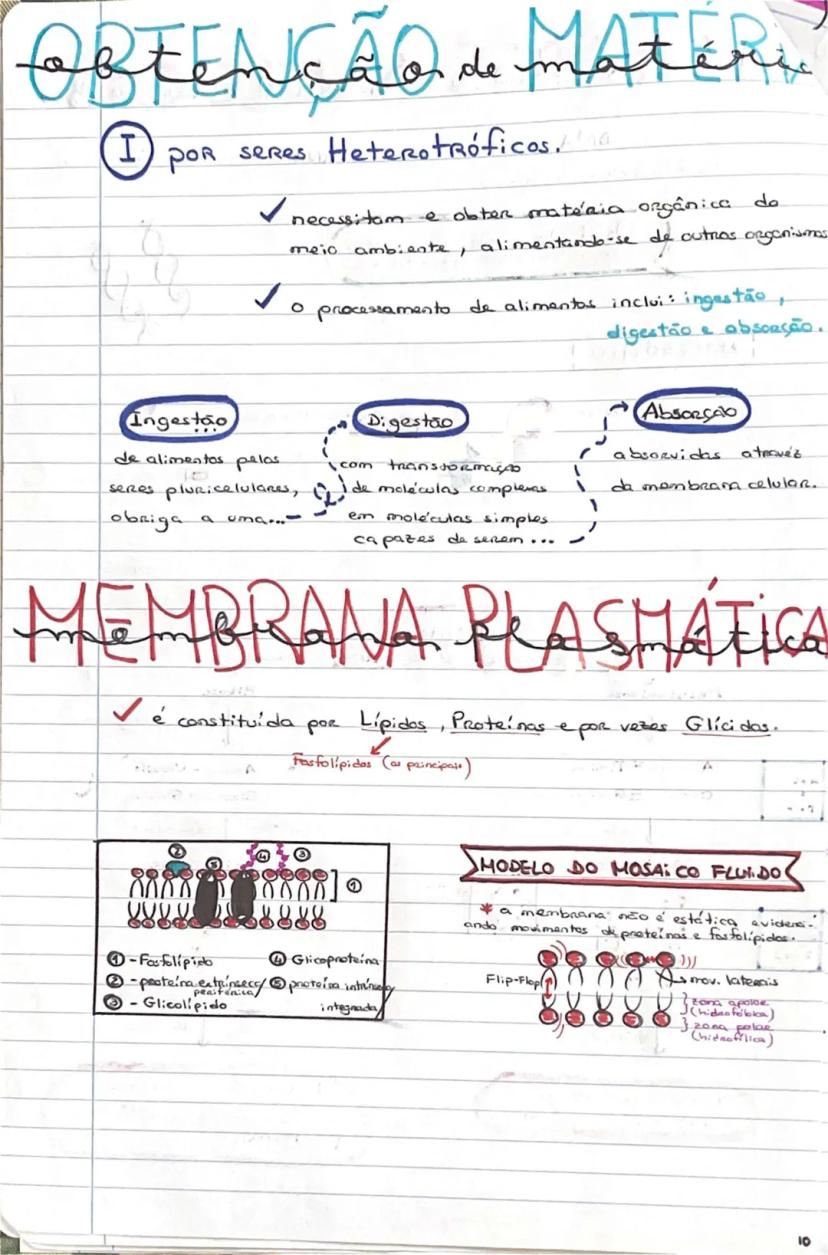 OBTENÇÃO MATÉRIA
obtenção de matéria
I por seres Heterotróficos.
✓ necessitam e obter matéria orgânica do
meio ambiente, alimentando-se de outros organismos
✓ o processamento de alimentos inclui: ingestão,
digestão e absorção.
Ingestão
de alimentos pelos
seres pluricelulares,
obriga a uma...
Digestão
com transformação
de moléculas complexas
em moléculas simples
capazes de serem ...
Absorção
absorvidas atravéz
da membrana celular.
MEMBRANA PLASMÁTICA
membrana plasmática
✓ é constituída por Lípidos, Proteínas e por vezes Glícidos.
Fosfolípidos (os principais)
2 5 4 3
1
1 - Fosfolípido
2 - proteína extrínseca/
periférica
3 - Glicolípido
4 Glicoproteína
5 proteína intrínseca/
integrada
MODELO DO MOSAICO FLUIDO
* a membrana não é estática evidenci-
ando movimentos de proteínas e fosfolípidos.
Flip-Flop
mov. laterais
zona apolar
(hidrofóbica)
zona polar
(hidrofílica)
10